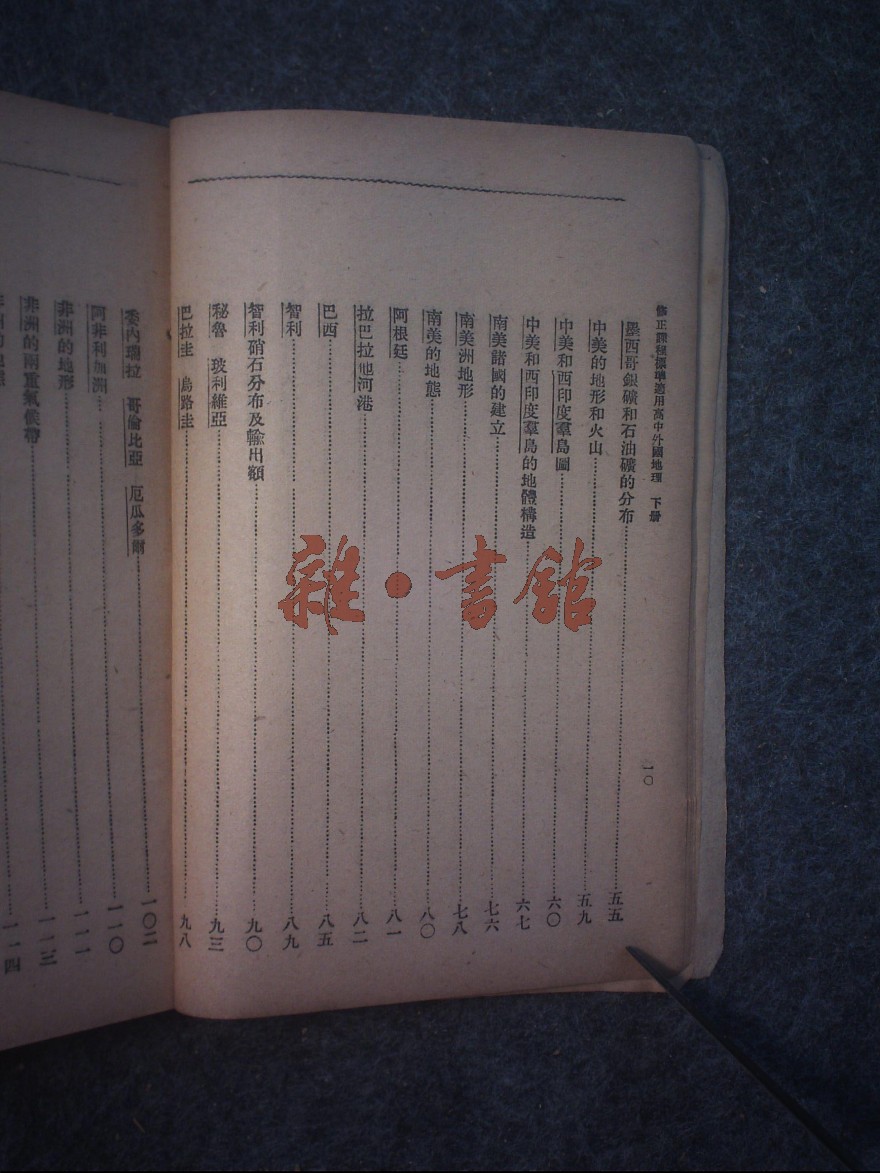 修正課程標準適用高中外國地理 下册
一〇
墨西哥銀礦和石油礦的分布……五五
中美的地形和火山……五九
中美和西印度羣島圖……六〇
中美和西印度羣島的地體構造……六七
南美諸國的建立……七六
南美洲地形……七八
南美的地態……八〇
阿根廷……八一
拉巴拉他河港……八二
巴西……八五
智利……八九
智利硝石分布及輸出額……九〇
秘魯 玻利維亞……九三
巴拉圭 烏路圭……九八
委內瑞拉 哥倫比亞 厄瓜多爾……一〇二
阿非利加洲……一一〇
非洲的地形……一一一
非洲的兩重氣候帶……一一三
非洲的地態……一一四
雜·書館